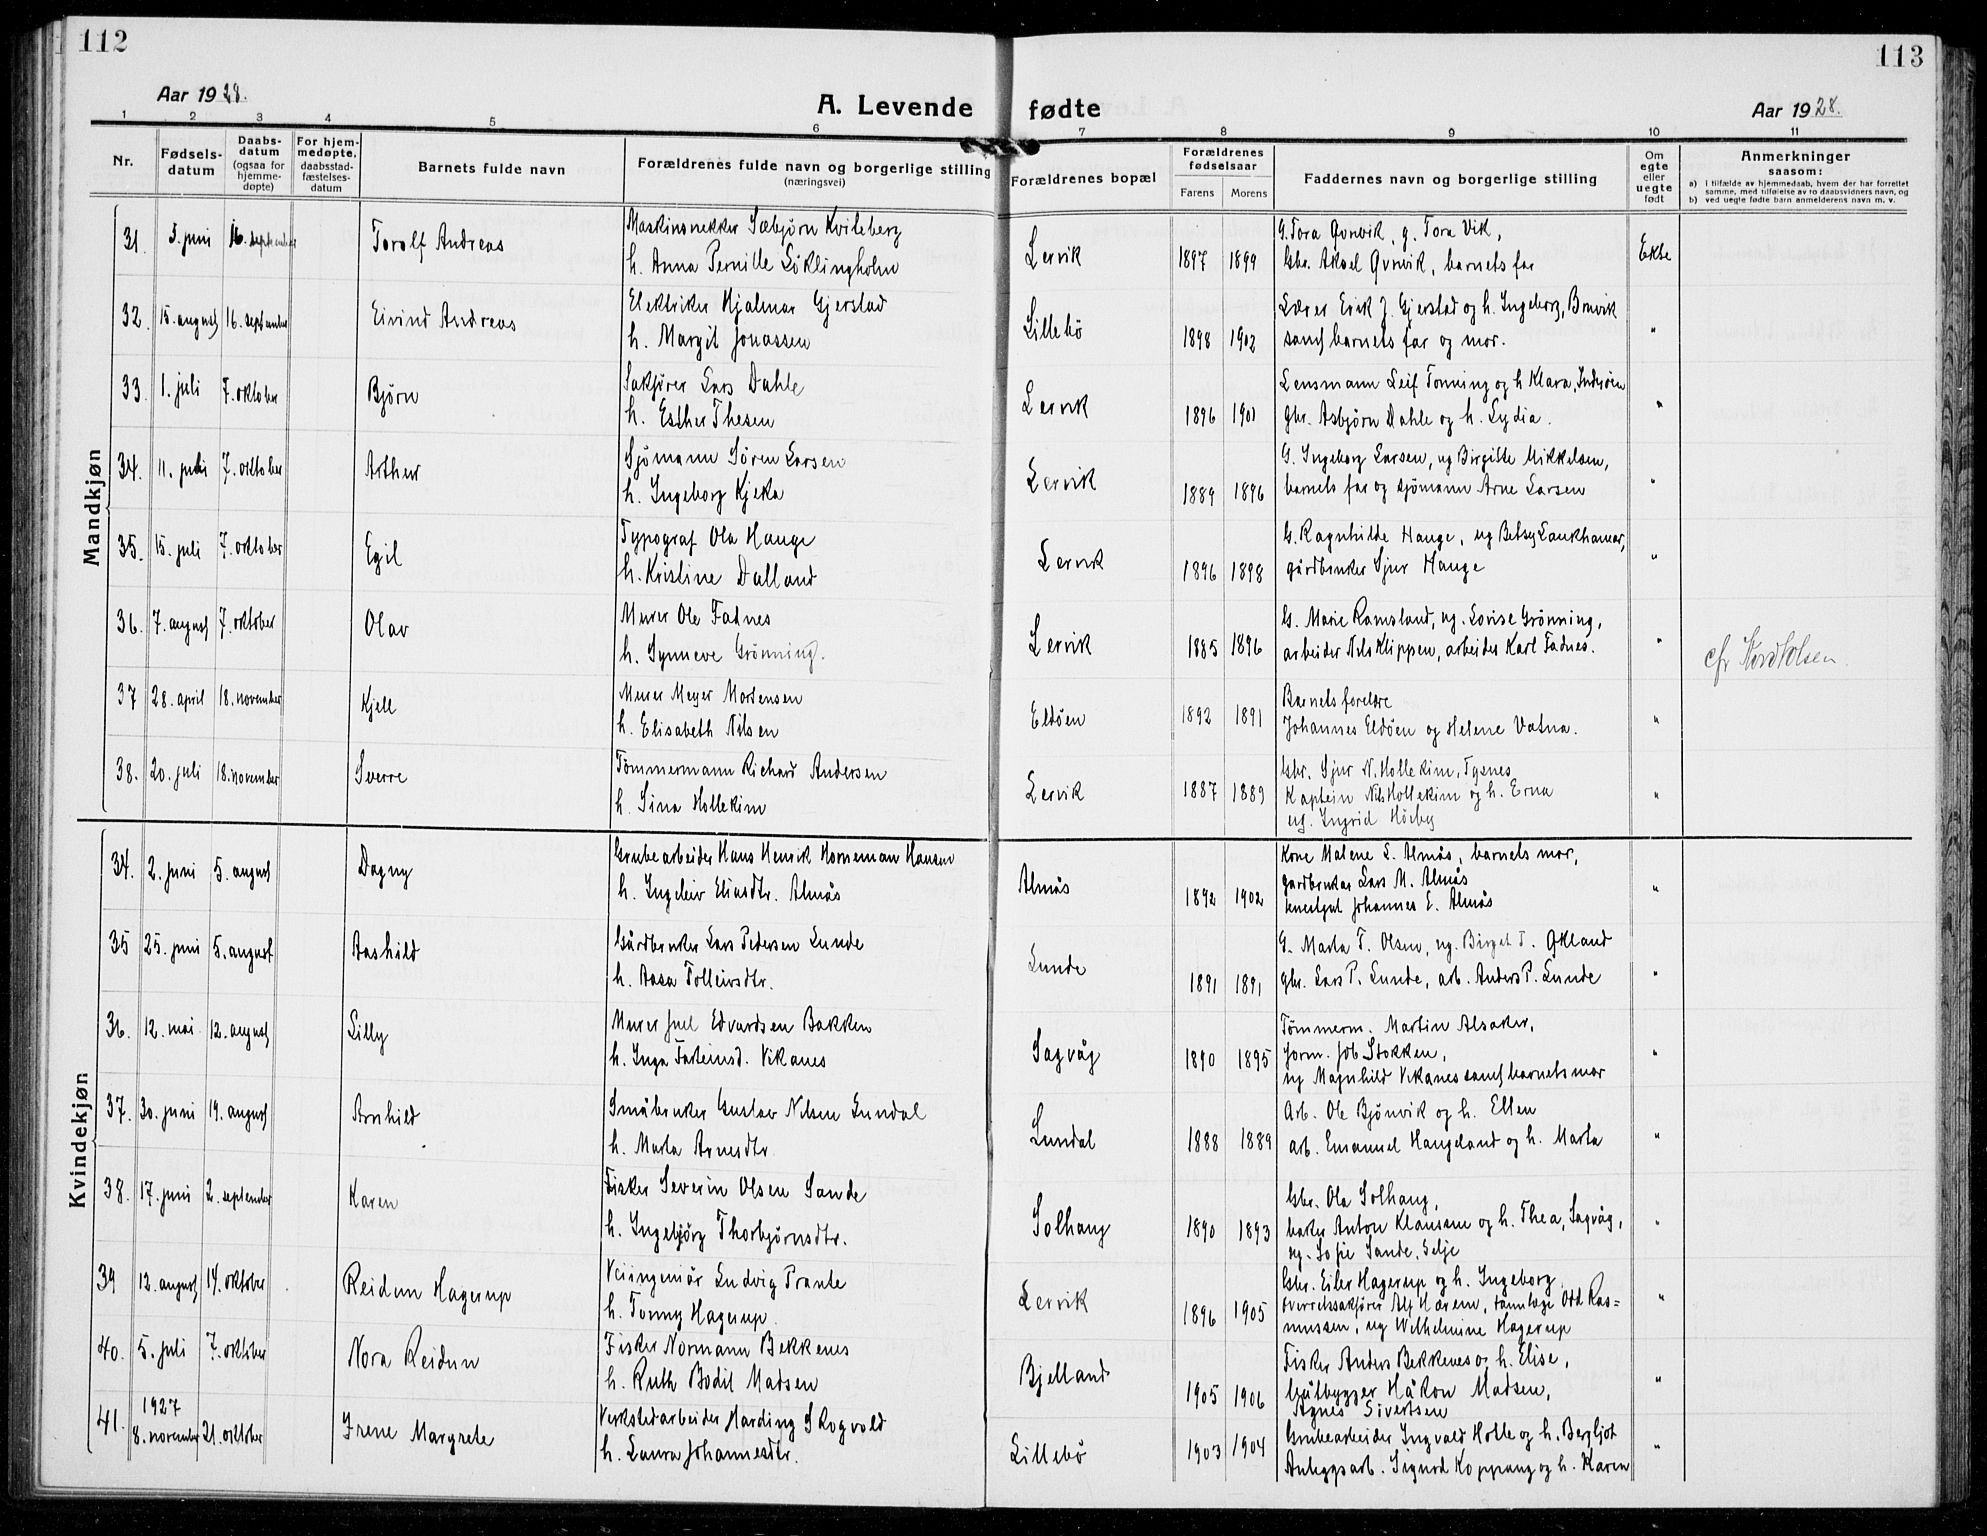 112
113
Aar 1928.
A. Levende fødte
Aar 1928.
1 2 3 4 5 6 7 8 9 10 11
Nr.
Fødsels-
datum
Daabs-
datum
(ogsaa for
hjemme-
døpte)
For hjem-
medøpte,
daabsstad-
fæstelses-
datum
Barnets fulde navn
Forældrenes fulde navn og borgerlige stilling
(næringsvei)
Forældrenes bopæl
Forældrenes
fødselsaar
Farens Morens
Faddernes navn og borgerlige stilling
Om
egte
eller
uegte
født
Anmerkninger
saasom:
a) i tilfælde av hjemmedaab, hvem der har forrettet
samme, med tilføielse av to daabsvidners navn, og
b) ved uegte fødte barn anmelderens navn m. v.
Mandkjøn
31. 3. juni 16. september Torolf Andreas
Maskinsnekker Sæbjørn Kvileberg
h. Anna Pernille Söklingholm
Lervik 1897 1899
G. Tora Qvnvik, g. Tora Vik,
Gbr. Aksel Qvnvik, barnets far
Ekte
32. 15. august 16. september Eivind Andreas
Elektriker Hjalmar Gjerstad
h. Margit Jonassen
Lillebö 1898 1902
Lærer Erik J. Gjerstad og h. Ingeborg, Bruvik
samt barnets far og mor.
"
33. 1. juli 7. oktober Bjørn
Sakfører Lars Dahle
h. Esther Thesen
Lervik 1896 1901
Lensmann Leif Tonning og h Klara, Indröen
gbr. Asbjørn Dahle og h. Lydia.
"
34. 11. juli 7. oktober Arthur
Sjömann Sören Larsen
h. Ingeborg Kjeka
Lervik 1889 1896
G. Ingeborg Larsen, ug Birgitte Mikkelsen,
barnets far og sjömann Arne Larsen
"
35. 15. juli 7. oktober Egil
Typograf Ola Hauge
h. Kristine Dalland
Lervik 1896 1898
G. Ragnhilde Hauge, ug Betsy Laukhamar,
gårdbruker Sjur Hauge
"
36. 7. august 7. oktober Olav
Murer Ole Fadnes
h. Synneve Grönning.
Lervik 1885 1896
G. Marie Ramsland, ug. Lovise Grönning,
arbeider Nils Klippen, arbeider Karl Fadnes.
"
37 28. april 18. november Kjell
Murer Meyer Mortensen
h. Elisabeth Nilsen
Eldöen 1892 1891
Barnets foreldre
Johannes Eldöen og Helene Vatna.
"
38. 20. juli 18. november Sverre
Tömmermann Richard Andersen
h. Sina Hollekim
Lervik 1887 1889
Gbr. Sjur N. Hollekim, Tysnes
Kaptein Nils Hollekim og h. Erna
ug. Ingrid Höiby
"
Kvindekjøn
34. 2. juni 5. august Dagny
Grubearbeider Hans Henrik Horneman Hansen
h. Ingeleiv Eliasdtr. Almås
Almås 1892 1902
Kone Malene L. Almås, barnets mor,
gårdbruker Lars M. Almås
ungkar Johannes E. Almås
"
35 25. juni 5. august Aashild
Gårdbruker Lars Pedersen Lunde
h. Aasa Tolleivsdtr.
Lunde 1891 1891
G. Marta T. Olsen, ug. Birgit T. Økland
gbr. Lars P. Lunde, arb. Anders P. Lunde
"
36. 12. mai 12. august Lilly
Murer Juel Edvardsen Bakken
h. Inga Fasteinsd. Vikanes
Sagvåg 1890 1895
Tömmerm. Martin Alsaker,
form. Job Stokken,
ug Magnhild Vikanes samt barnets mor
"
37. 30. juni 19. august Arnhild
Småbruker Gustav Nilsen Lundal
h. Marta Arnesdtr.
Lundal 1888 1889
Arb. Ole Bjönvik og h. Ellen
arb. Emanuel Haugeland og h. Marta
"
38. 17. juni 2. september Karen
Fisker Severin Olsen Sande
h. Ingebjörg Thorbjørnsdtr.
Solhaug 1890 1893
Gbr. Ola Solhaug,
baker Anton Klausen og h. Thea, Sagvåg,
ug. Sofie Sande, Selje
"
39 12. august 14. oktober Reidun Hagerup
Veiingeniör Ludvig Prante
h. Tonny Hagerup.
Lervik 1896 1905
Gbr. Eiler Hagerup og h. Ingeborg
overretssakfører Alf Hærem, tannlæge Odd Ras=
mussen, ug Wilhelmine Hagerup
"
40. 5. juli 7. oktober Nora Reidun
Fisker Normann Bekkenes
h. Ruth Bodil Madsen
Bjelland 1905 1906
Fisker Anders Bekkenes og h. Elise,
båtbygger Håkon Madsen,
Agnes Sivertsen
"
41. 1927
8. november 21. oktober Irene Margrete
Verkstedarbeider Harding Skogvold
h. Laura Johannesdtr.
Lillebö 1903 1904
Grubearbeider Ingvald Holle og h. Bergljot
Anleggsarb. Sigurd Koppang og h. Karen
"